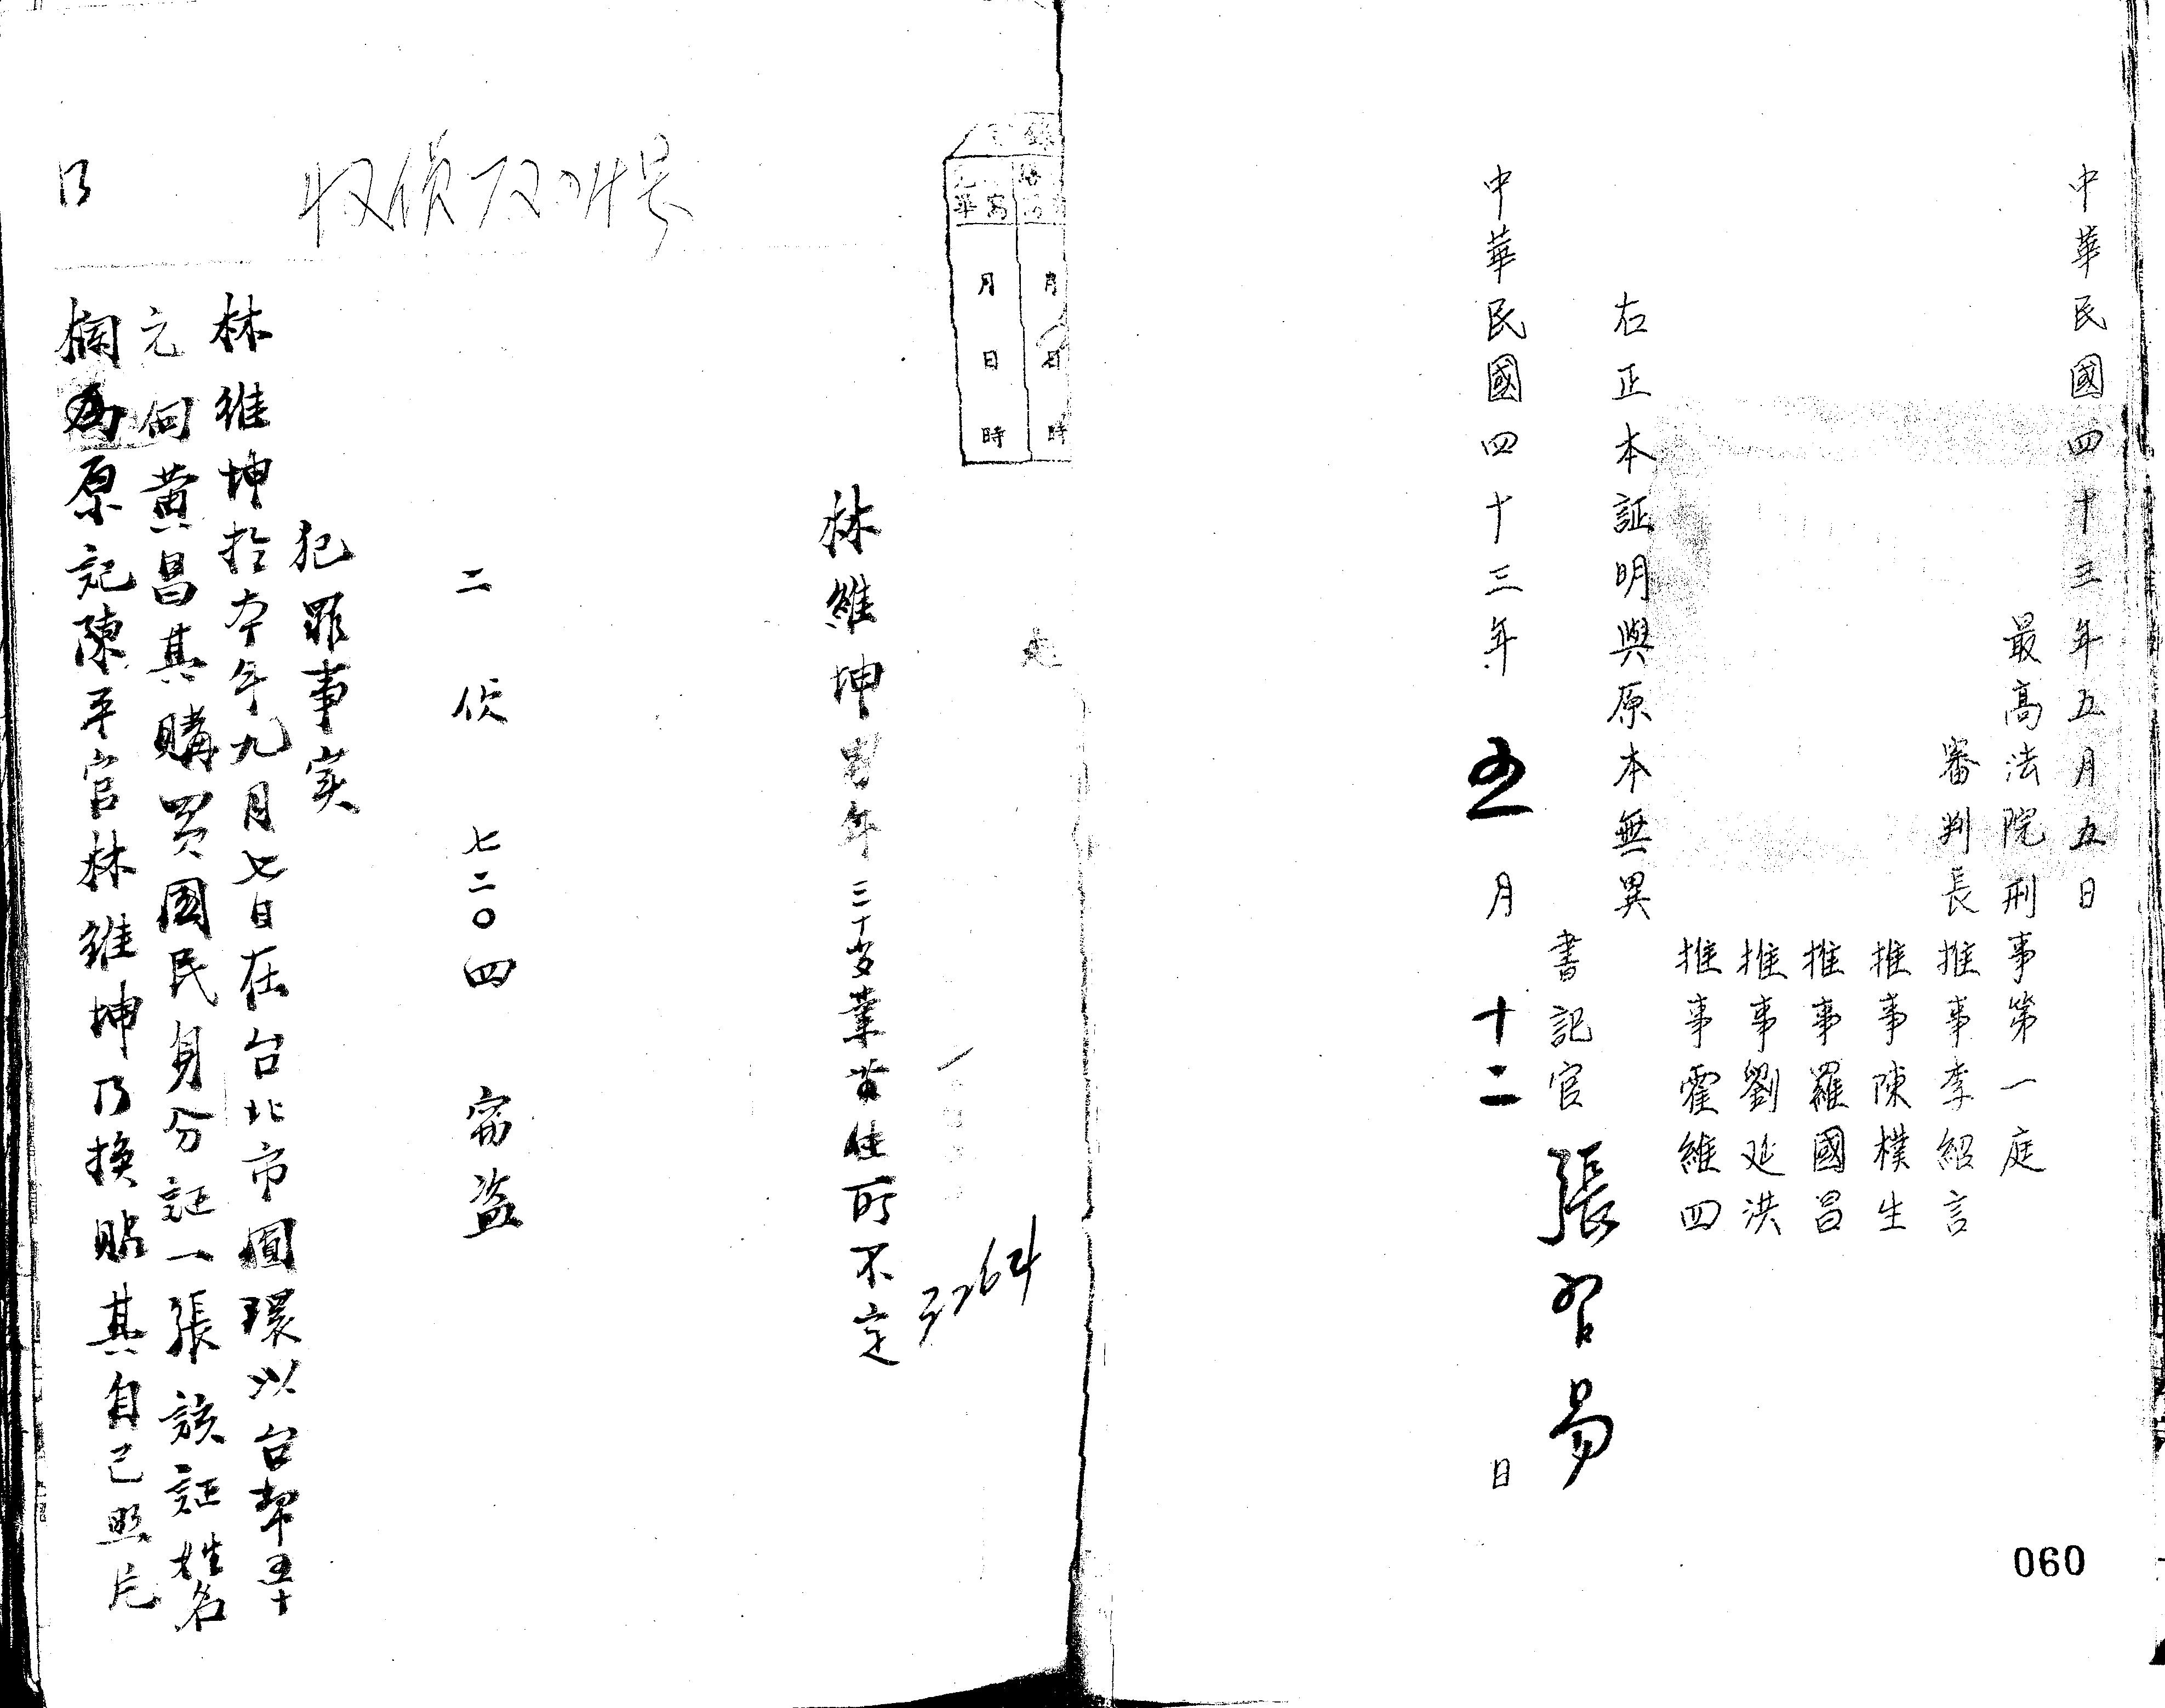 中華民國四十三年五月五日
最高法院刑事第一庭
審判長推事李紹言
推事陳樸生
推事羅國昌
推事劉延洪
推事霍維四
右正本証明與原本無異
書記官 張習易
中華民國四十三年 五 月 十二 日
060
月 日 時
月 日 時
3264
林維坤男年三十岁業苦住所不定
二 偵 七二〇四 竊盜
犯罪事实
林維坤於本年九月七日在台北市圓環以台幣五十
元向黄昌其購买國民身分証一張該証姓名
欄為原記陳平官林維坤乃換貼其自己照片
乃